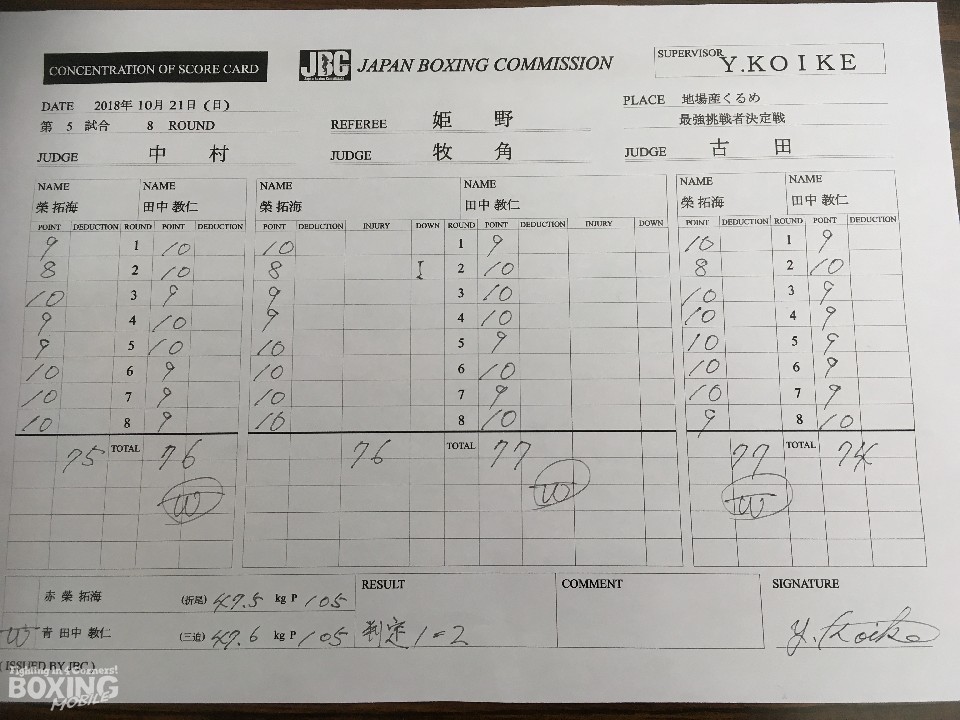 CONCENTRATION OF SCORE CARD
JBC JAPAN BOXING COMMISSION
SUPERVISOR Y.KOIKE
DATE 2018年 10月 21日 (日)
PLACE 地場産くるめ
第 5 試合 8 ROUND
REFEREE 姫 野
最強挑戦者決定戦
JUDGE 中 村
JUDGE 牧 角
JUDGE 古 田
NAME NAME NAME NAME NAME NAME
榮 拓海 田中 教仁 榮 拓海 田中 教仁 榮 拓海 田中 教仁
POINT DEDUCTION ROUND POINT DEDUCTION POINT DEDUCTION INJURY DOWN ROUND POINT DEDUCTION INJURY DOWN POINT DEDUCTION ROUND POINT DEDUCTION
9 1 10 10 1 9 10 1 9
8 2 10 8 I 2 10 8 2 10
10 3 9 9 3 10 10 3 9
9 4 10 9 4 10 10 4 9
9 5 10 10 5 9 10 5 9
10 6 9 10 6 10 10 6 9
10 7 9 10 7 9 10 7 9
10 8 9 10 8 10 9 8 10
75 TOTAL 76 76 TOTAL 77 77 TOTAL 74
W W W
赤 榮 拓海 (折尾) 47.5 kg P 105
RESULT
COMMENT
SIGNATURE
W 青 田中 教仁 (三迫) 47.6 kg P 105 判定 1-2
Y. Koike
(ISSUED BY JBC)
Fighting in 4 Corners!
BOXING
MOBILE